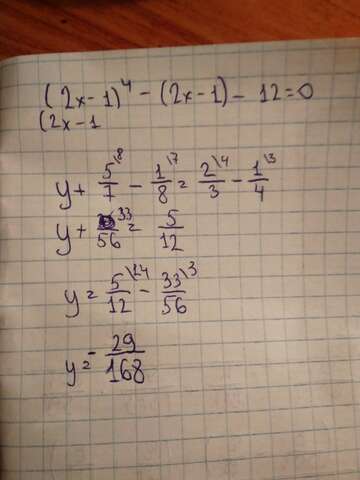 (2x-1)^4 - (2x-1) - 12 = 0
(2x-1
y + 5/7\8 - 1/8\7 = 2/3\4 - 1/4\3
y + 33/56 = 5/12
y = 5/12\14 - 33/56\3
y = -29/168